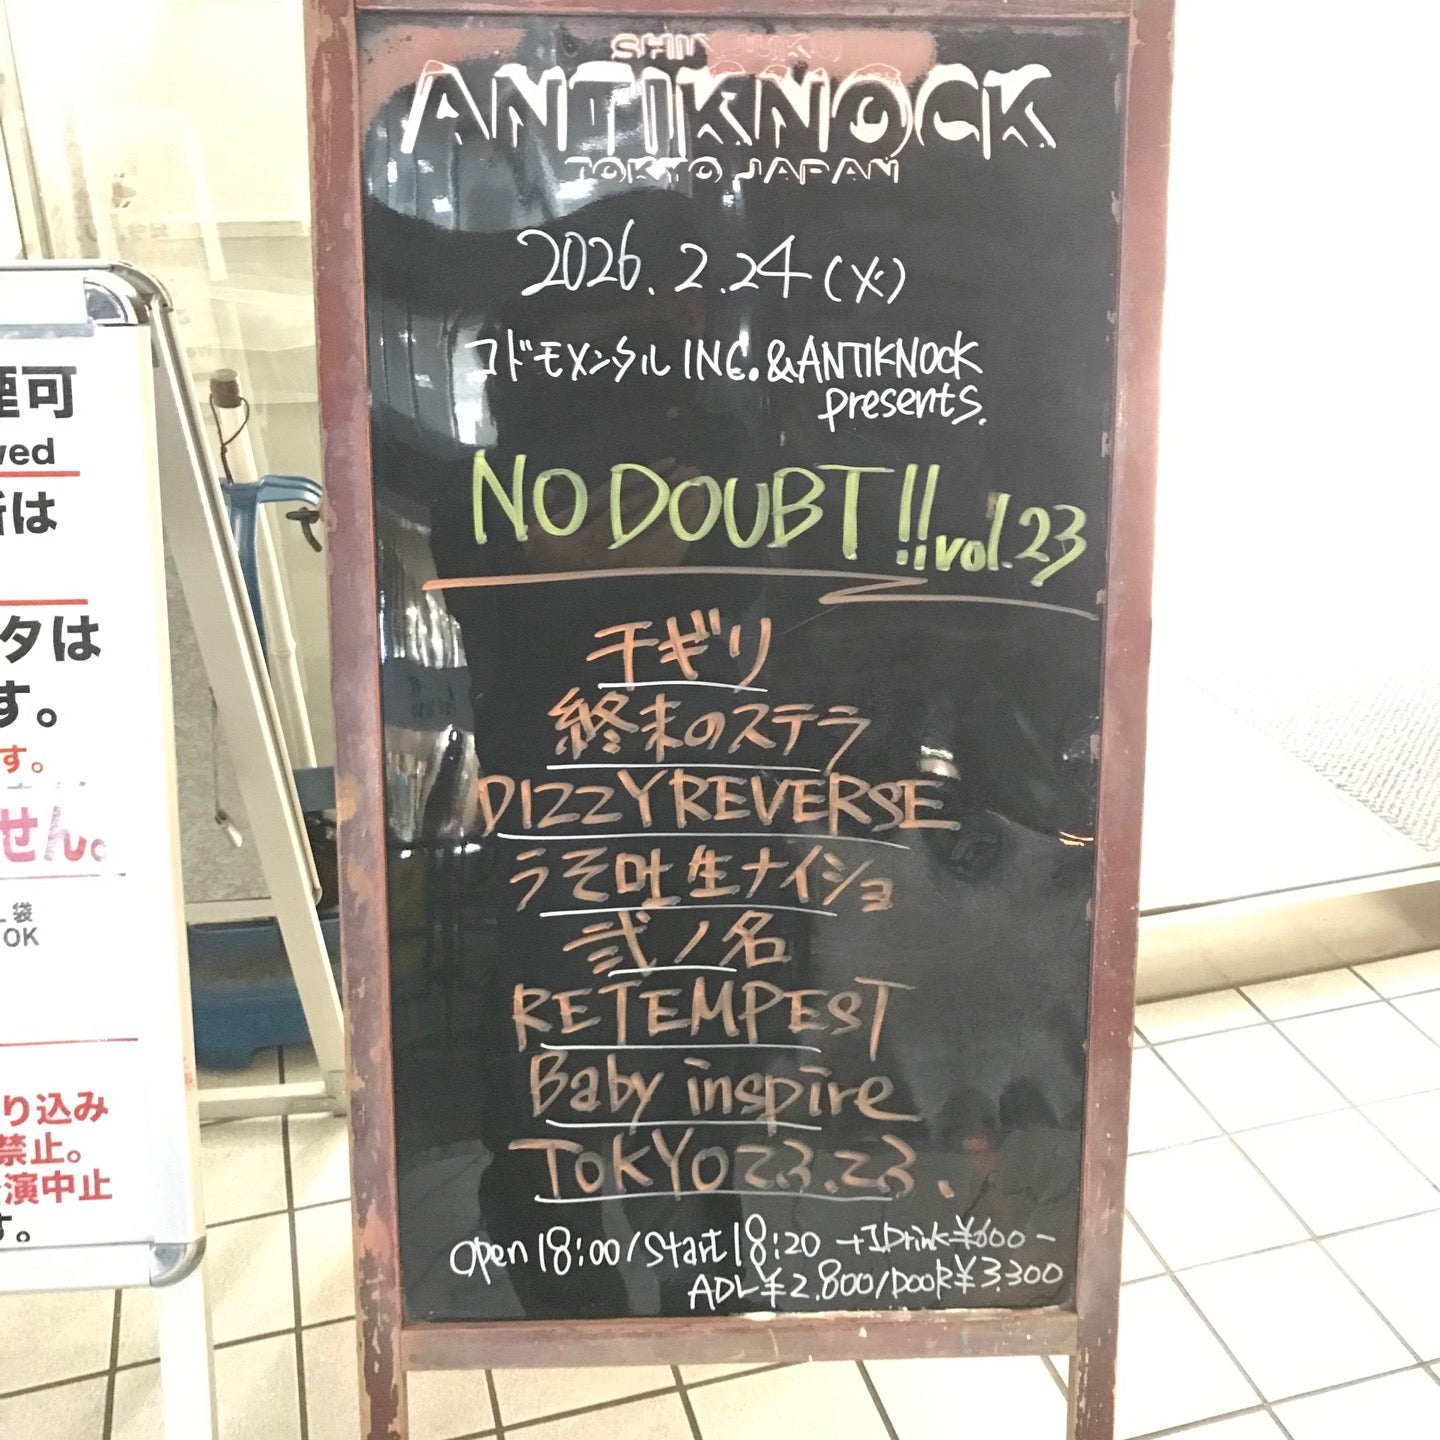 SHINJUKU
ANTIKNOCK
TOKYO JAPAN
2026.2.24(火)
コドモメンタル INC.&ANTIKNOCK
presents.
NO DOUBT!!vol.23
チギリ
終末のステラ
DIZZYREVERSE
うそ吐生ナイショ
弐ノ名
RETEMPEST
Baby inspire
TOKYO てふてふ.
open 18:00/start 18:20 +1Drink¥600-
ADV¥2.800/DOOR¥3.300
可
wed
は
タは
す。
す。
せん。
袋
OK
り込み
禁止。
演中止
す。